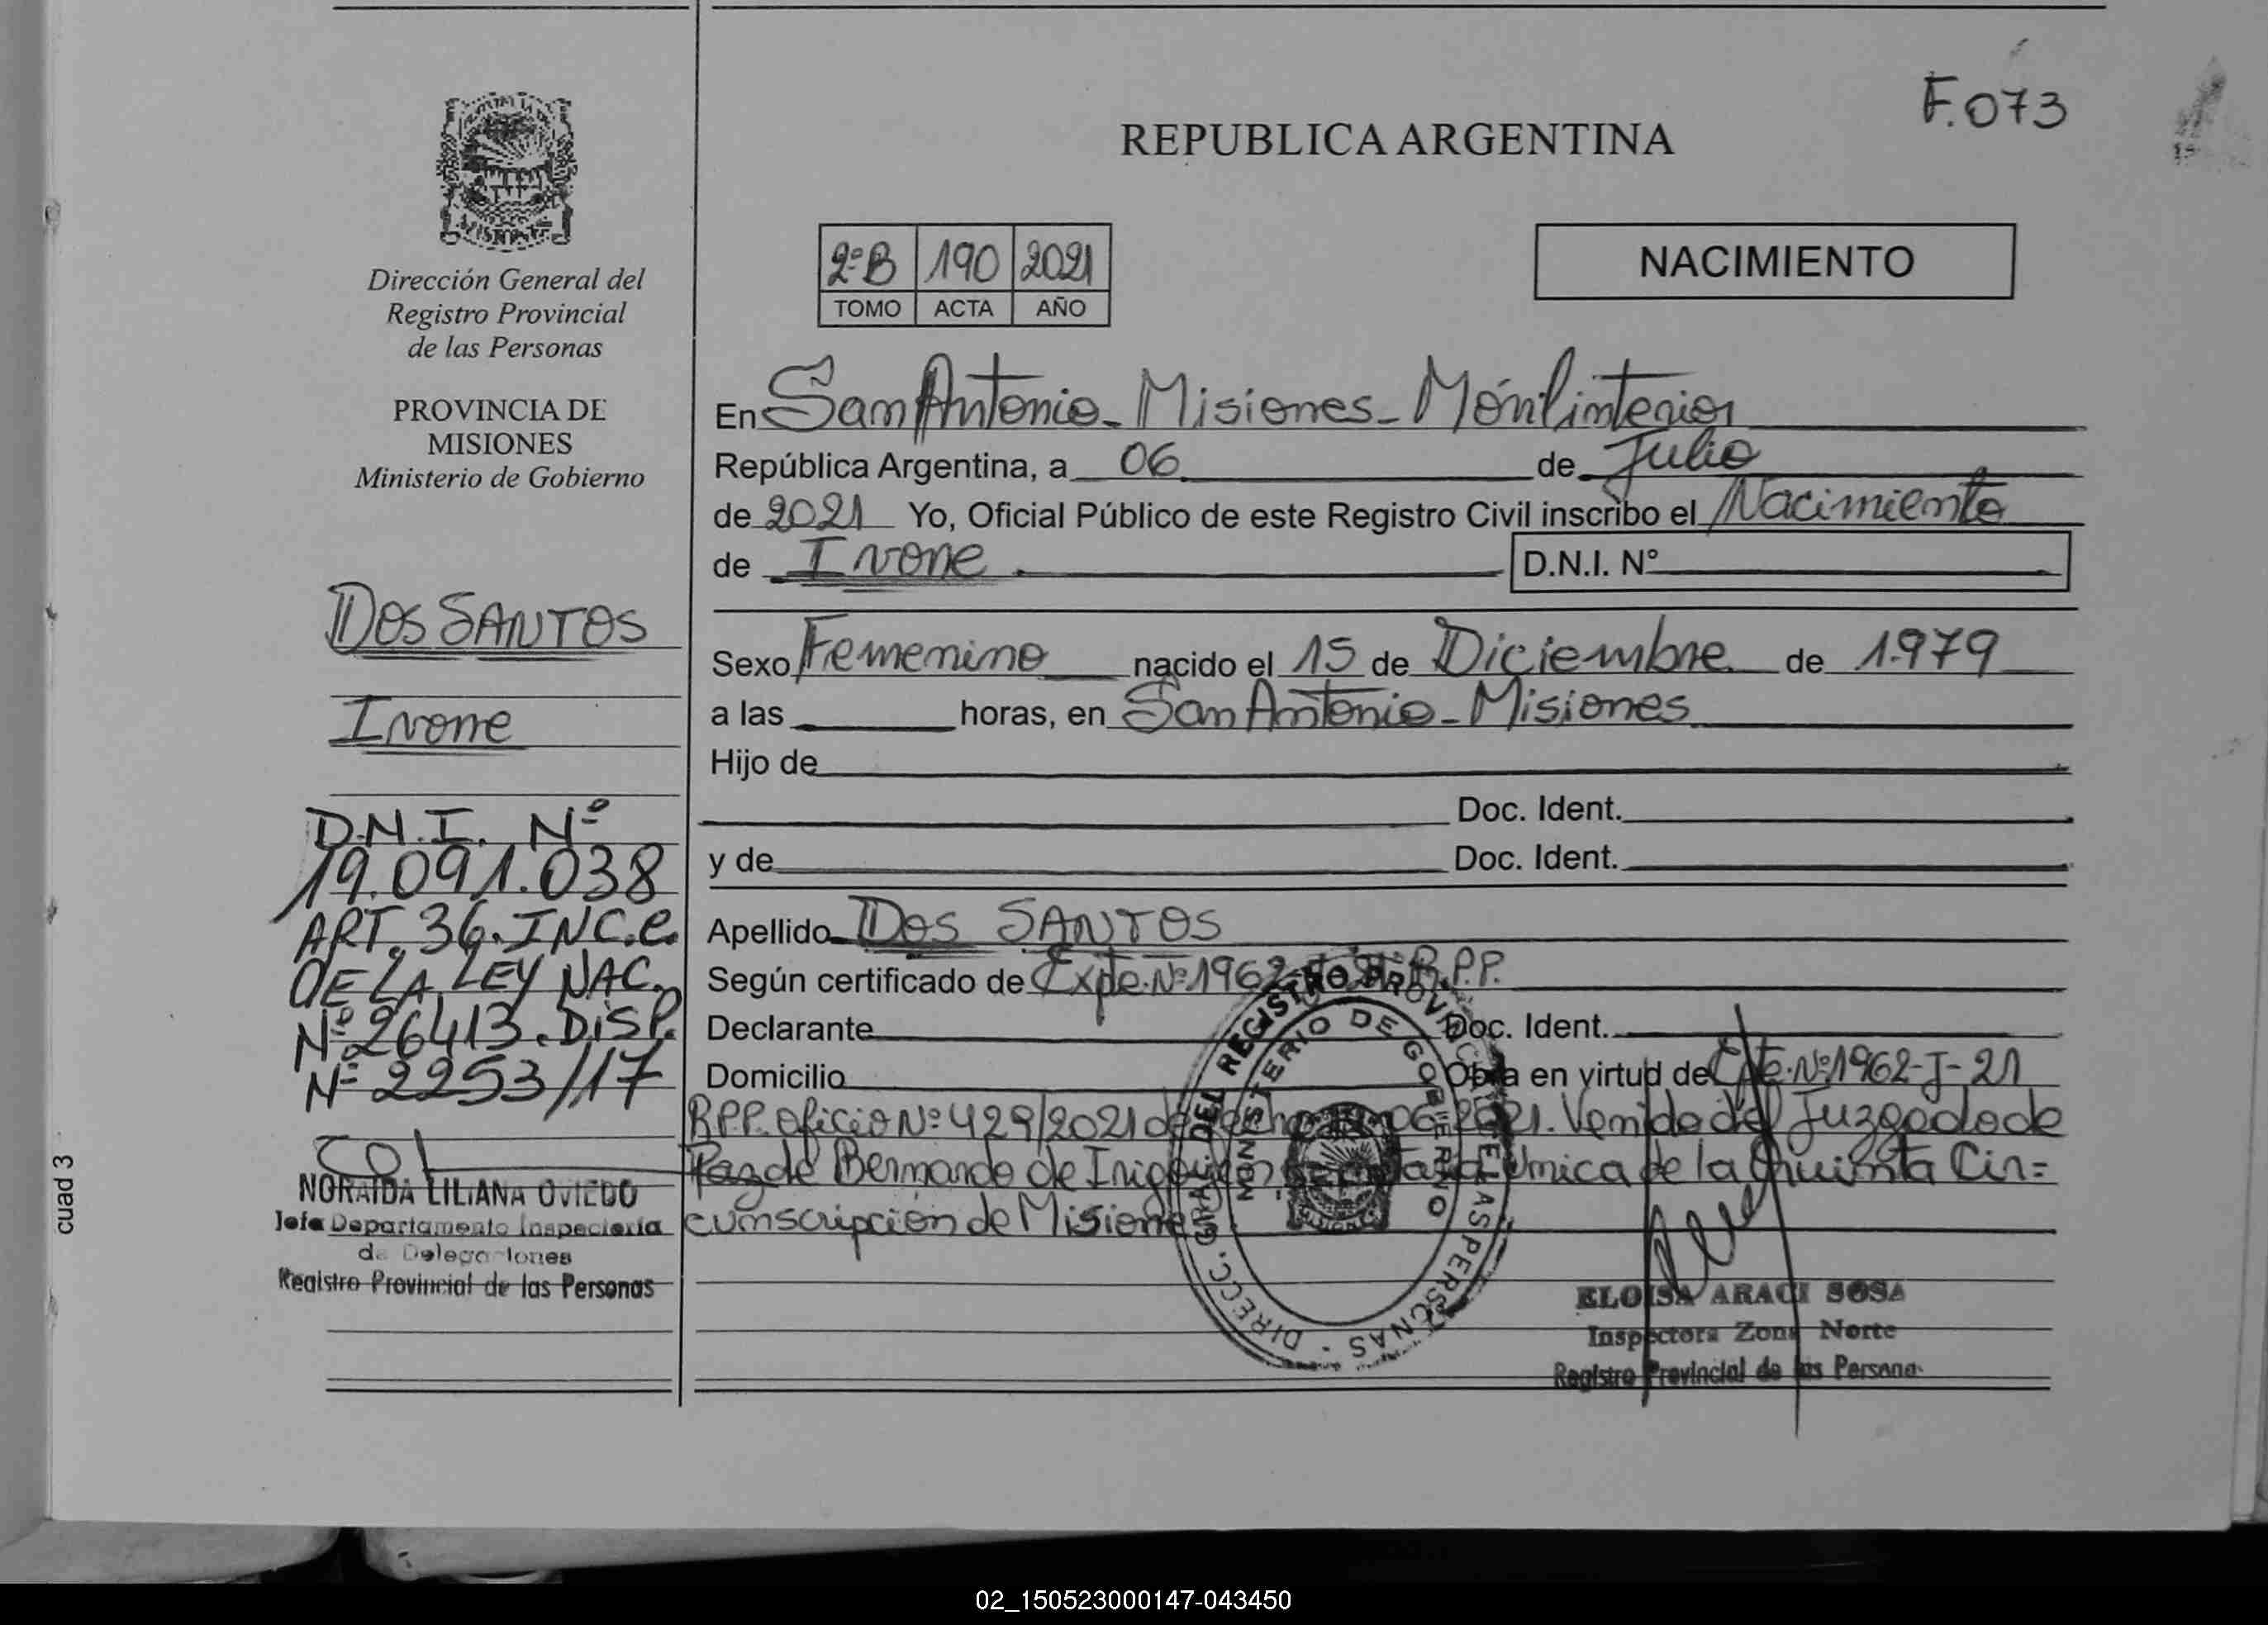 F.073
REPUBLICA ARGENTINA
Dirección General del
Registro Provincial
de las Personas
PROVINCIA DE
MISIONES
Ministerio de Gobierno
DOS SANTOS
Ivone
D.N.I. Nº
19.091.038
ART. 36. INC.e.
DE LA LEY NAC.
Nº 26413. DISP.
Nº 2253/17
NORAIDA LILIANA OVIEDO
Jefa Departamento Inspectoria
de
Registro Provincial de las Personas
cuad 3
2ºB 190 2021
TOMO ACTA AÑO
NACIMIENTO
En San Antonio - Misiones - Móvil interior
República Argentina, a 06 de Julio
de 2021 Yo, Oficial Público de este Registro Civil inscribo el Nacimiento
de Ivone D.N.I. Nº
Sexo Femenino nacido el 15 de Diciembre de 1.979
a las horas, en San Antonio - Misiones
Hijo de
Doc. Ident.
y de Doc. Ident.
Apellido Dos SANTOS
Según certificado de Expte. Nº 1962 R.P.P.
Declarante Doc. Ident.
Domicilio Obra en virtud de Expte. Nº 1962-J-21
R.P.P. Oficio Nº 429/2021 de fecha 06 2021. Venido del Juzgado de
Paz de Bernardo de Irigoyen Unica de la Quinta Cir=
cunscripción de Misiones
DIRECC. GRAL. DEL REGISTRO PROVINCIAL DE LAS PERSONAS
MINISTERIO DE GOBIERNO
MISIONES
ELOISA ARACI SOSA
Inspectora Zona Norte
Registro Provincial de las Persona
02_150523000147-043450